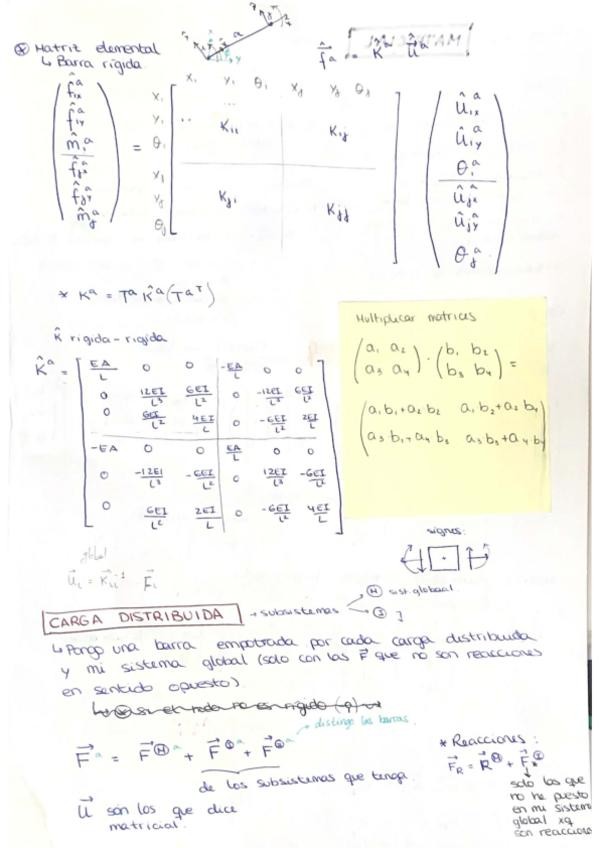 * Matriz elemental
↳ Barra rígida
f̂^a = K̂^a Û^a
x_i y_i θ_i x_j y_j θ_j
f̂_ix^a
f̂_iy^a
m̂_i^a
f̂_jx^a
f̂_jy^a
m̂_j^a
=
x_i
y_i
θ_i
x_j
y_j
θ_j
K_ii K_ij
K_ji K_jj
û_ix^a
û_iy^a
θ_i^a
û_jx^a
û_jy^a
θ_j^a
* K^a = T^a K̂^a (T^aT)
K̂ rigida-rigida
K̂^a =
EA/L 0 0 -EA/L 0 0
0 12EI/L³ 6EI/L² 0 -12EI/L³ 6EI/L²
0 6EI/L² 4EI/L 0 -6EI/L² 2EI/L
-EA 0 0 EA/L 0 0
0 -12EI/L³ -6EI/L² 0 12EI/L³ -6EI/L²
0 6EI/L² 2EI/L 0 -6EI/L² 4EI/L
Multiplicar matrices
(a₁ a₂ / a₃ a₄) · (b₁ b₂ / b₃ b₄) =
signos:
global
U_L = K_LL^-1 F_L
CARGA DISTRIBUIDA → subsistemas
(H) sist. globaal
↳ Pongo una barra empotrada por cada carga distribuida
y mi sistema global (solo con las F que no son reacciones
en sentido opuesto)
distingo las barras
de los subsistemas que tenga.
U son los que dice
matricial.
* Reacciones:
solo las que
no he puesto
en mi sistema
global xq
son reacciones